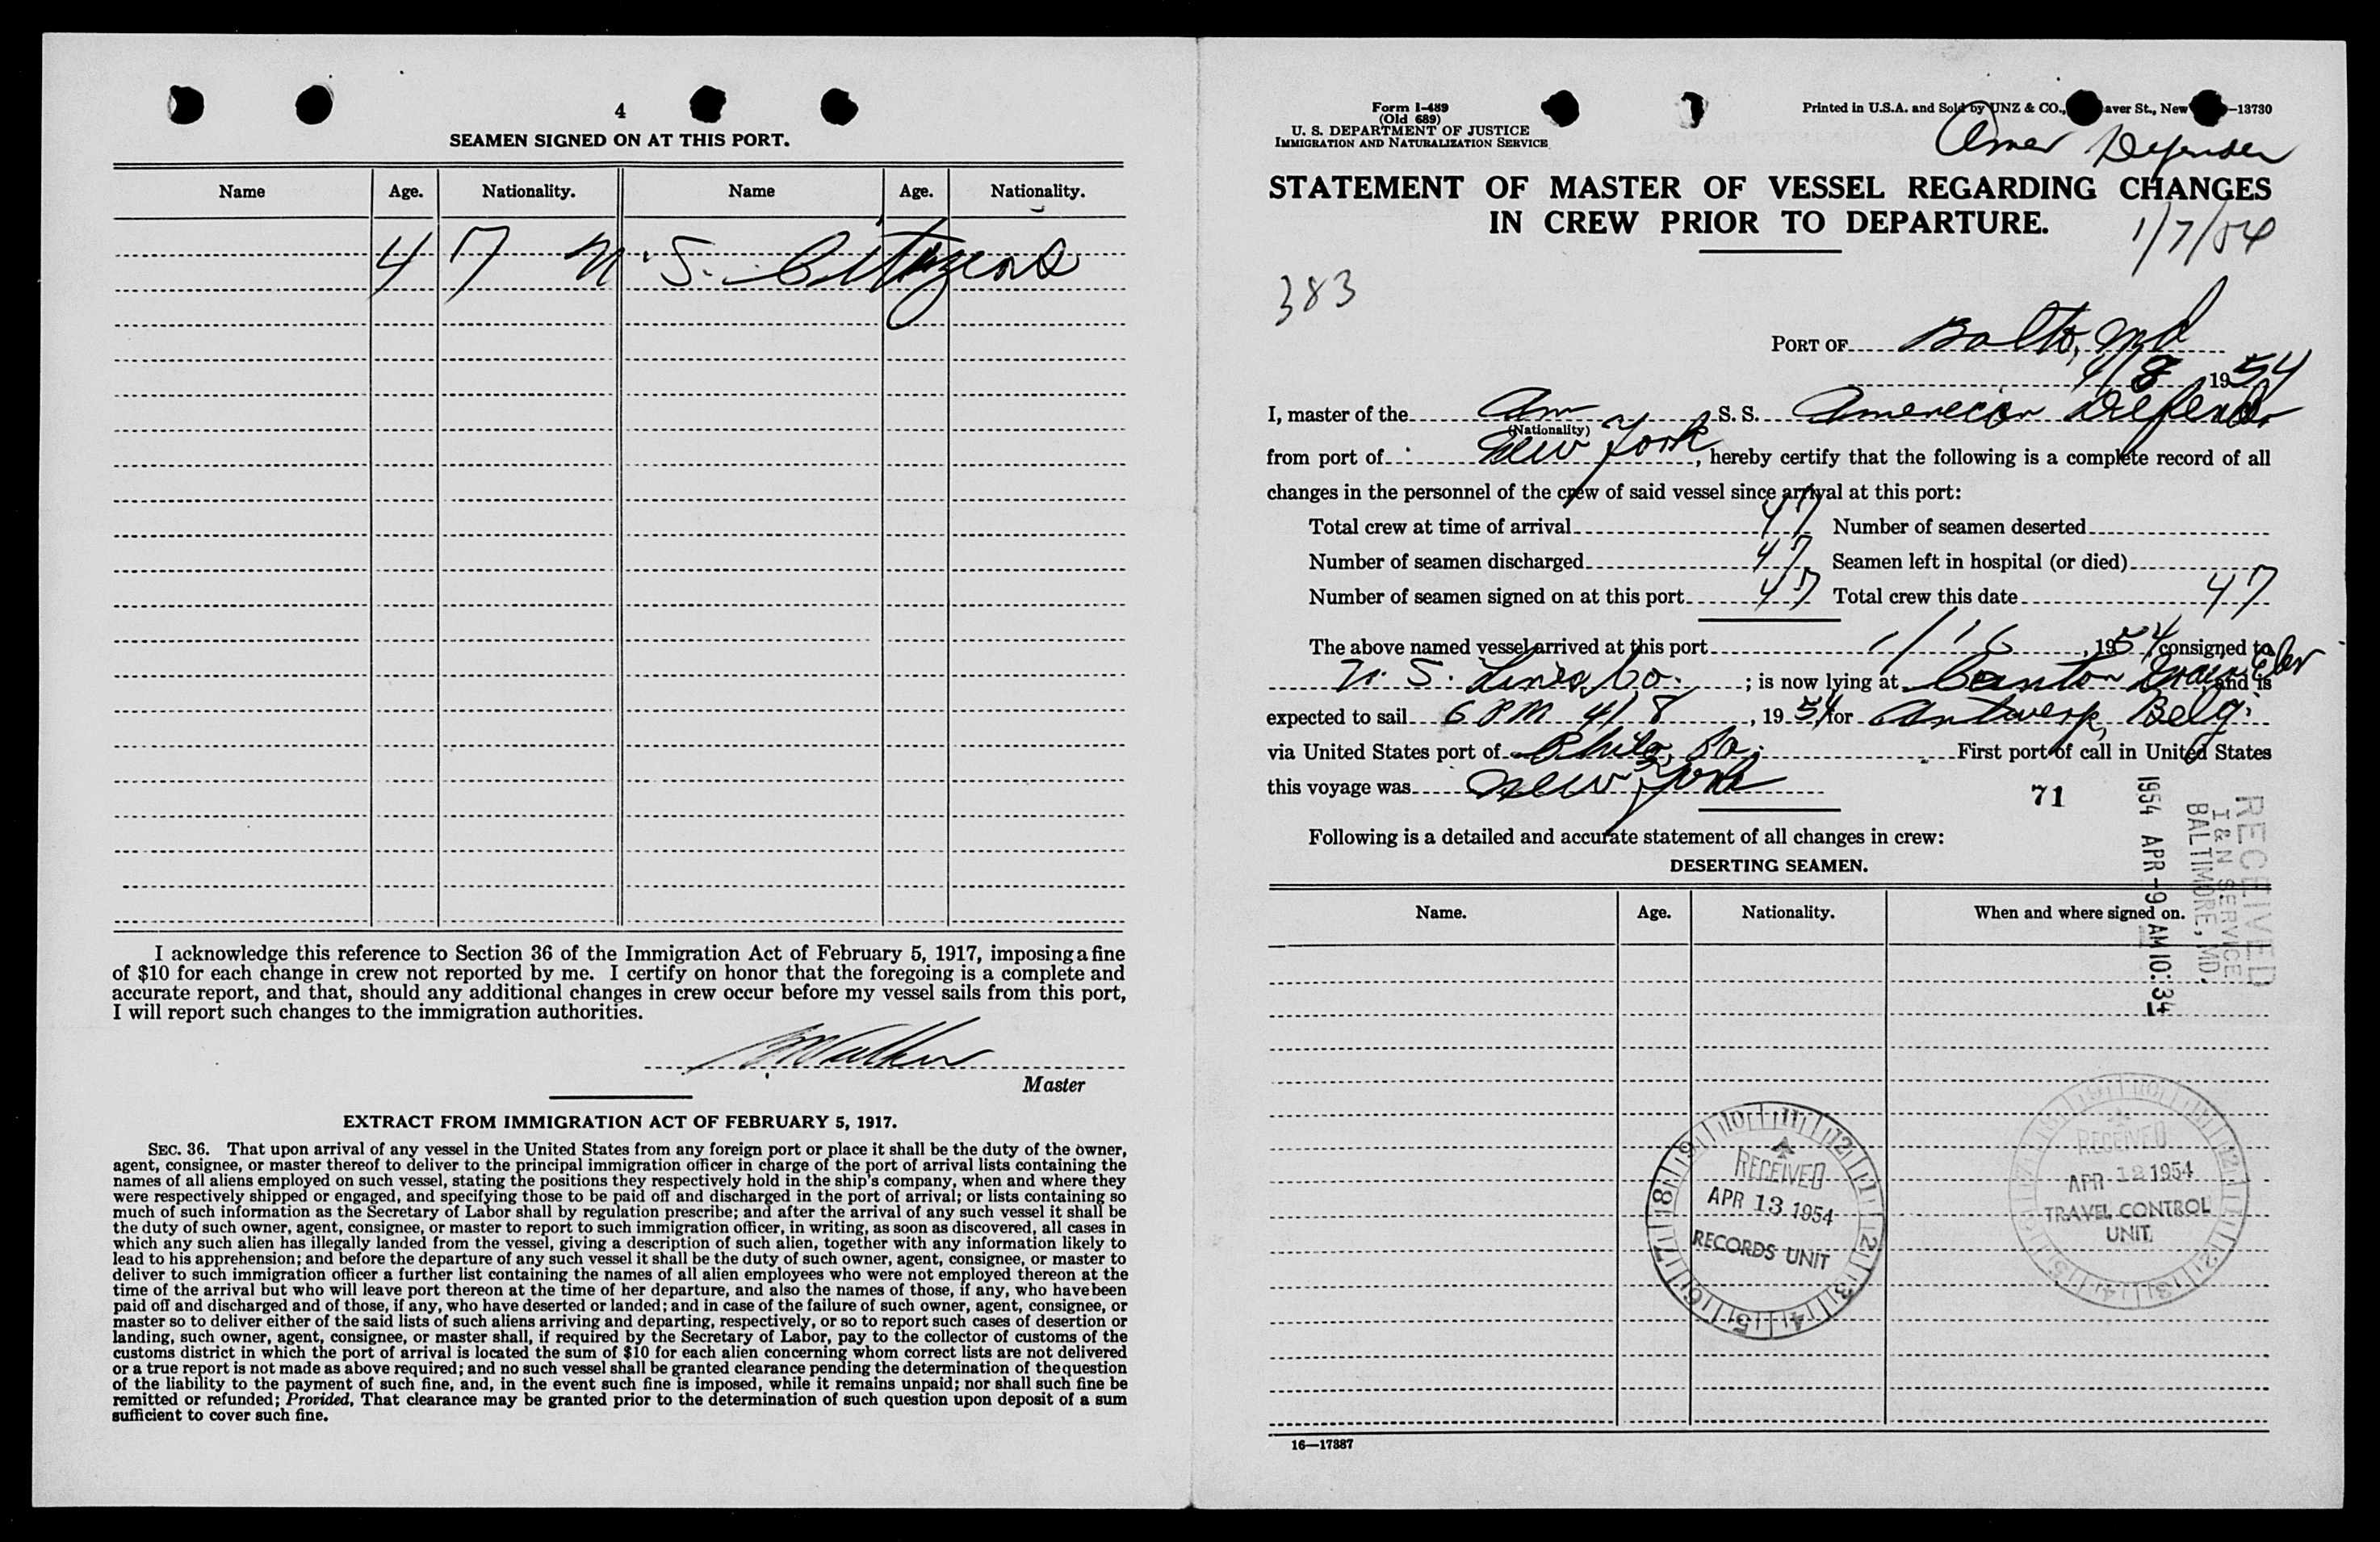 4
SEAMEN SIGNED ON AT THIS PORT.
Name Age. Nationality. Name Age. Nationality.
47 U.S. Citizens
I acknowledge this reference to Section 36 of the Immigration Act of February 5, 1917, imposing a fine
of $10 for each change in crew not reported by me. I certify on honor that the foregoing is a complete and
accurate report, and that, should any additional changes in crew occur before my vessel sails from this port,
I will report such changes to the immigration authorities.
Master
EXTRACT FROM IMMIGRATION ACT OF FEBRUARY 5, 1917.
SEC. 36. That upon arrival of any vessel in the United States from any foreign port or place it shall be the duty of the owner,
agent, consignee, or master thereof to deliver to the principal immigration officer in charge of the port of arrival lists containing the
names of all aliens employed on such vessel, stating the positions they respectively hold in the ship's company, when and where they
were respectively shipped or engaged, and specifying those to be paid off and discharged in the port of arrival; or lists containing so
much of such information as the Secretary of Labor shall by regulation prescribe; and after the arrival of any such vessel it shall be
the duty of such owner, agent, consignee, or master to report to such immigration officer, in writing, as soon as discovered, all cases in
which any such alien has illegally landed from the vessel, giving a description of such alien, together with any information likely to
lead to his apprehension; and before the departure of any such vessel it shall be the duty of such owner, agent, consignee, or master to
deliver to such immigration officer a further list containing the names of all alien employees who were not employed thereon at the
time of the arrival but who will leave port thereon at the time of her departure, and also the names of those, if any, who have been
paid off and discharged and of those, if any, who have deserted or landed; and in case of the failure of such owner, agent, consignee, or
master so to deliver either of the said lists of such aliens arriving and departing, respectively, or so to report such cases of desertion or
landing, such owner, agent, consignee, or master shall, if required by the Secretary of Labor, pay to the collector of customs of the
customs district in which the port of arrival is located the sum of $10 for each alien concerning whom correct lists are not delivered
or a true report is not made as above required; and no such vessel shall be granted clearance pending the determination of the question
of the liability to the payment of such fine, and, in the event such fine is imposed, while it remains unpaid; nor shall such fine be
remitted or refunded; Provided, That clearance may be granted prior to the determination of such question upon deposit of a sum
sufficient to cover such fine.
Form I-489
(Old 689)
U. S. DEPARTMENT OF JUSTICE
IMMIGRATION AND NATURALIZATION SERVICE
Printed in U.S.A. and Sold by UNZ & CO., aver St., New -13730
Amer Defender
STATEMENT OF MASTER OF VESSEL REGARDING CHANGES
IN CREW PRIOR TO DEPARTURE.
1/7/54
383
PORT OF Balto, Md
4/8 1954
I, master of the Am S. S. American Defender
(Nationality)
from port of New York, hereby certify that the following is a complete record of all
changes in the personnel of the crew of said vessel since arrival at this port:
Total crew at time of arrival 47 Number of seamen deserted
Number of seamen discharged 47 Seamen left in hospital (or died)
Number of seamen signed on at this port 47 Total crew this date 47
The above named vessel arrived at this port , 1954 consigned to
U.S. Lines Co. ; is now lying at Canton Grain Elev and is
expected to sail 6 PM 4/8, 1954 for Antwerp, Belg.
via United States port of Phila, Pa. First port of call in United States
this voyage was New York
71
Following is a detailed and accurate statement of all changes in crew:
DESERTING SEAMEN.
Name. Age. Nationality. When and where signed on.
RECEIVED
I & N SERVICE
BALTIMORE, MD.
1954 APR -9 AM 10:34
RECEIVED
APR 13 1954
RECORDS UNIT
RECEIVED
APR 12 1954
TRAVEL CONTROL
UNIT
16—17887